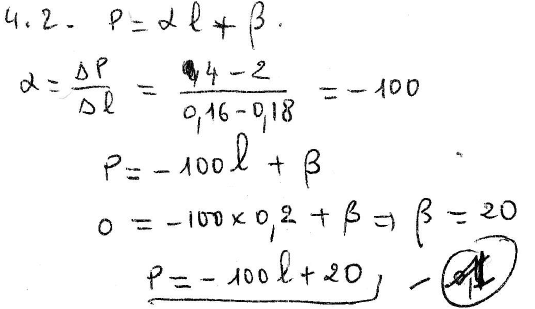 4.2. P = αl + β.
α = ΔP/Δl = (4 - 2)/(0,16 - 0,18) = -100
P = -100l + β
0 = -100 × 0,2 + β ⇒ β = 20
P = -100l + 20, -